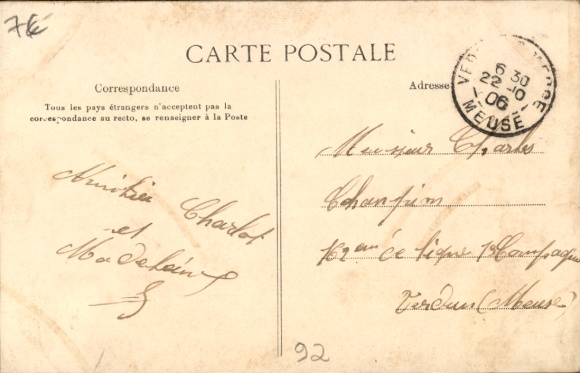 CARTE POSTALE
Correspondance
Tous les pays étrangers n'acceptent pas la
correspondance au recto, se renseigner à la Poste
Adresse
6 30
22 -10
06
MEUSE
Amitiés
Charlot
et
Madeleine
Monsieur Charles
162 de ligne Compagnie
Verdun (Meuse)
92